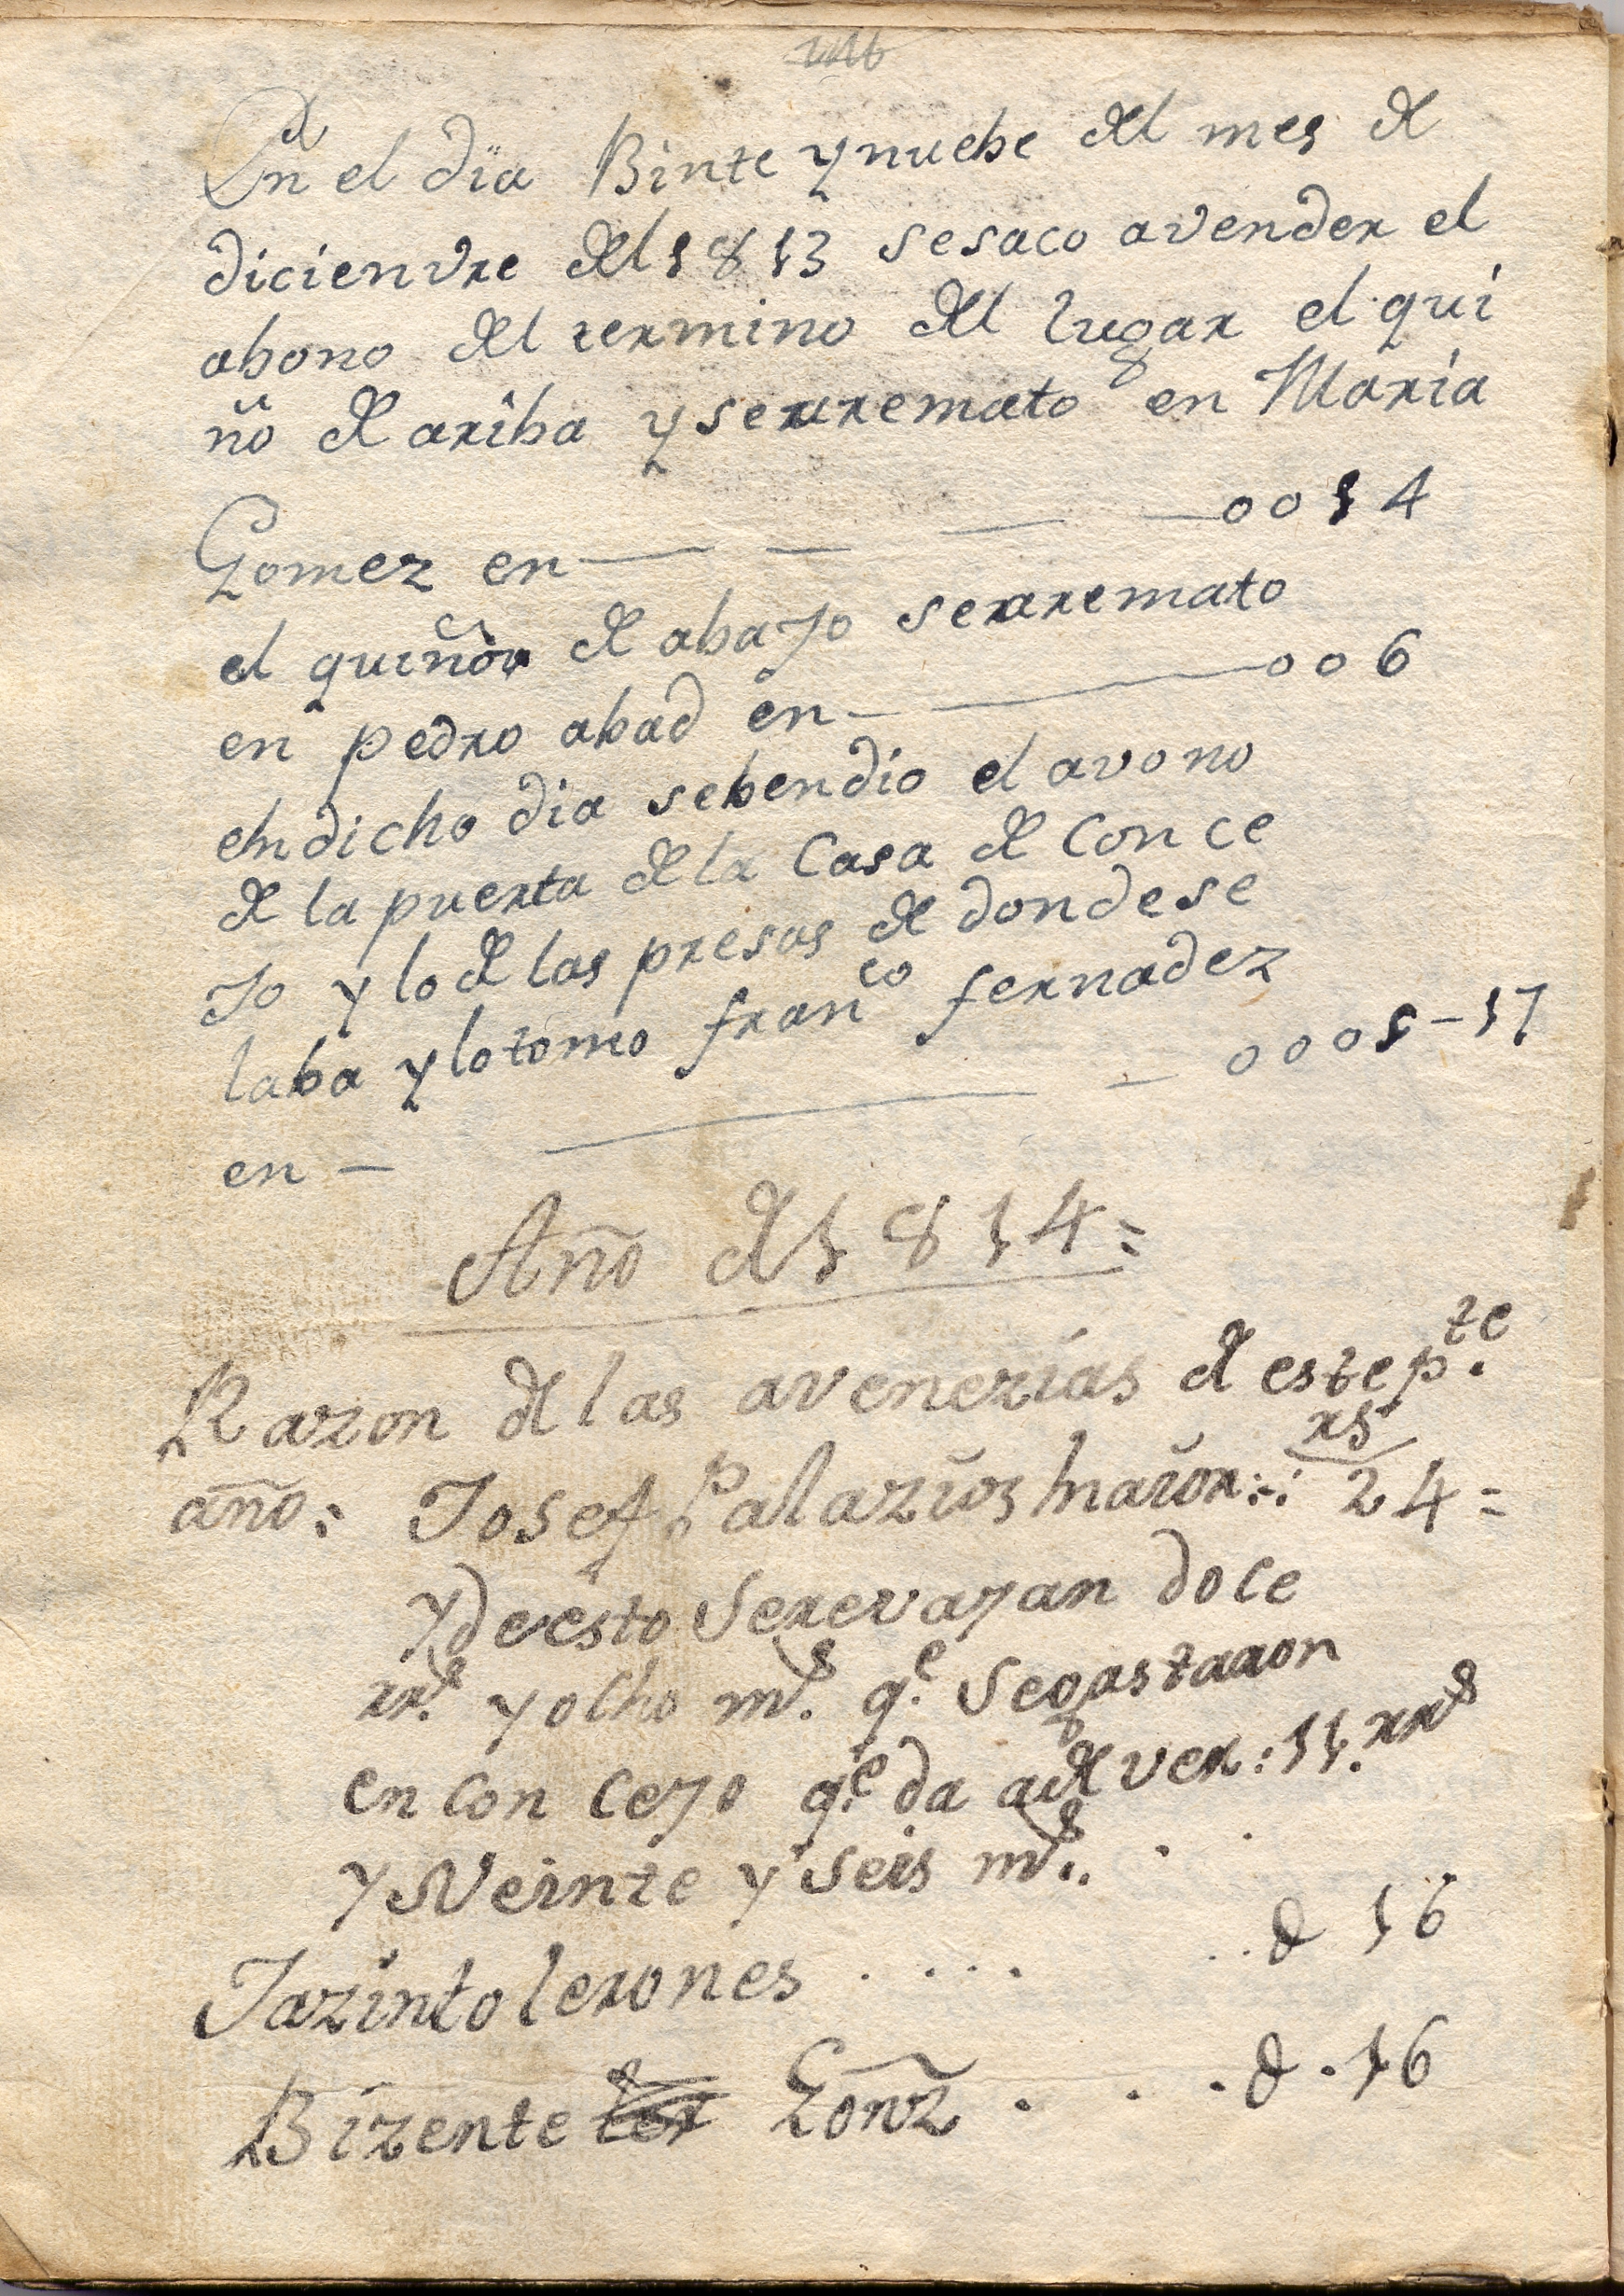 En el dia Binte y nuebe del mes de
dicienvre del 1813 se saco avender el
abono del termino del lugar el qui
ño de ariba y serremato en Maria
Gomez en — — — — 0014
el quiñon de abajo serremato
en pedro abad en — — 006
en dicho dia sebendio el avono
de la puerta de la Casa de Conce
Jo y lo de las presas de dondese
laba y lo tomo franco fernadez
en — — — 0001-17
Año de 1814=
Razon de las avenerias de este pte.
año: Josef Palazios maior:: rs 24=
y de esto Serevajan doce
rrs. y ocho ms. qe. Se gastaron
en Concejo qe. da a dever: 11. rrs
y Veinte y seis ms..
Jazinto lerones . . . . . . d 16
Bizente Gonz . . . d . 16